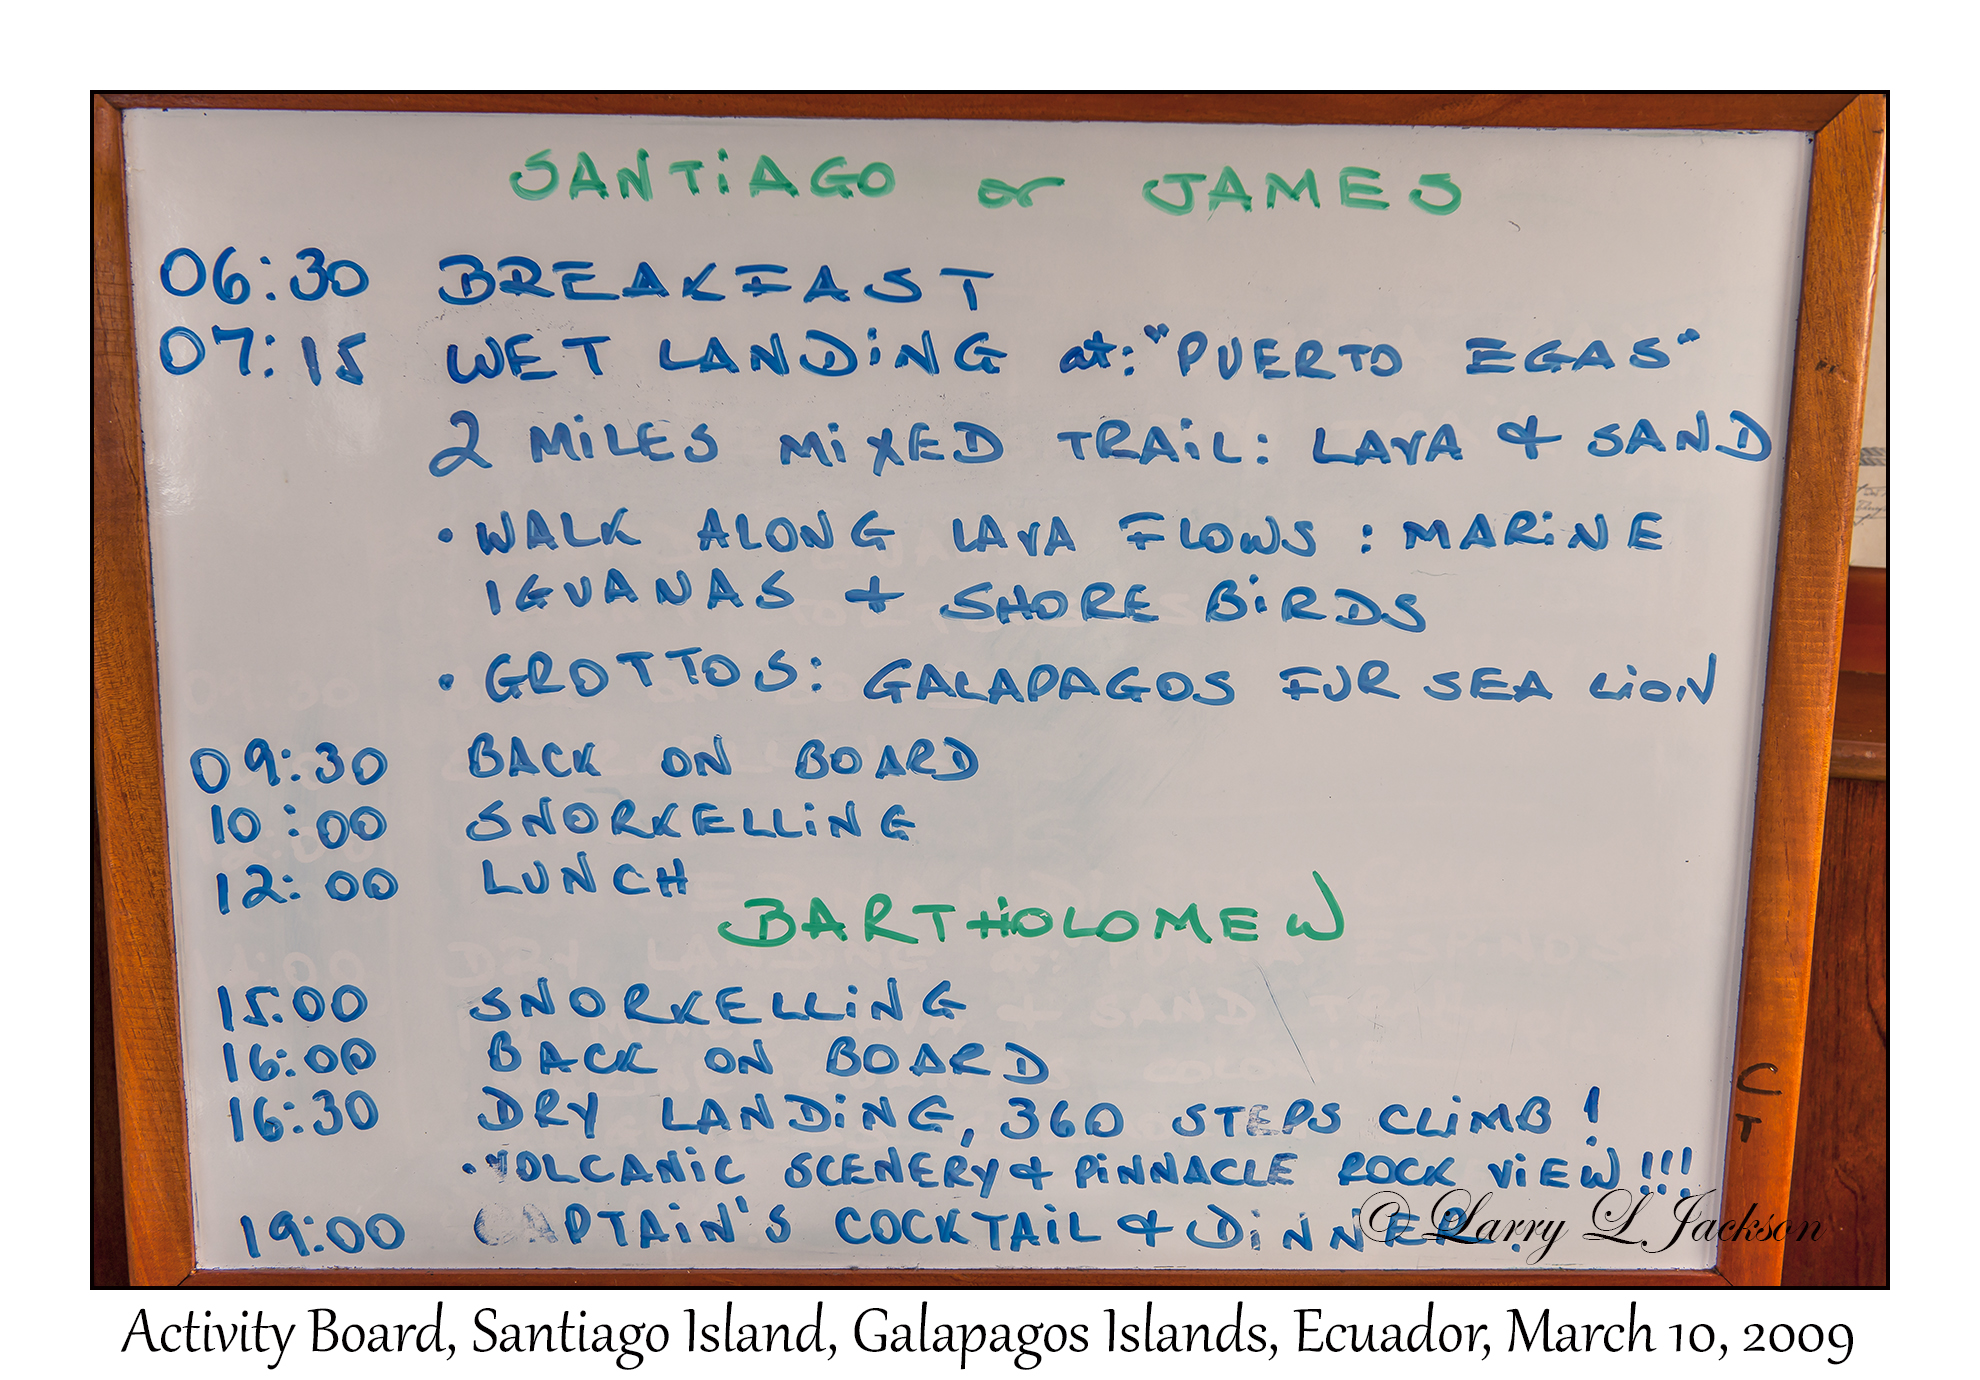 SANTiAGO or JAMES
06:30 BREAKFAST
07:15 WET LANDiNG at: "PUERTO EGAS"
2 MiLES MiXED TRAiL: LAVA & SAND
• WALK ALONG LAVA FLOWS : MARiNE
IGUANAS & SHORE BiRDS
• GROTTOS: GALAPAGOS FUR SEA LiON
09:30 BACK ON BOARD
10:00 SNORKELLiNG
12:00 LUNCH
BARTHOLOMEW
15:00 SNORKELLiNG
16:00 BACK ON BOARD
16:30 DRY LANDiNG, 360 STEPS CLiMB!
• VOLCANiC SCENERY & PiNNACLE ROCK ViEW!!!
19:00 CAPTAiN'S COCKTAiL & DiNNER.
C
T
© Larry L Jackson
Activity Board, Santiago Island, Galapagos Islands, Ecuador, March 10, 2009